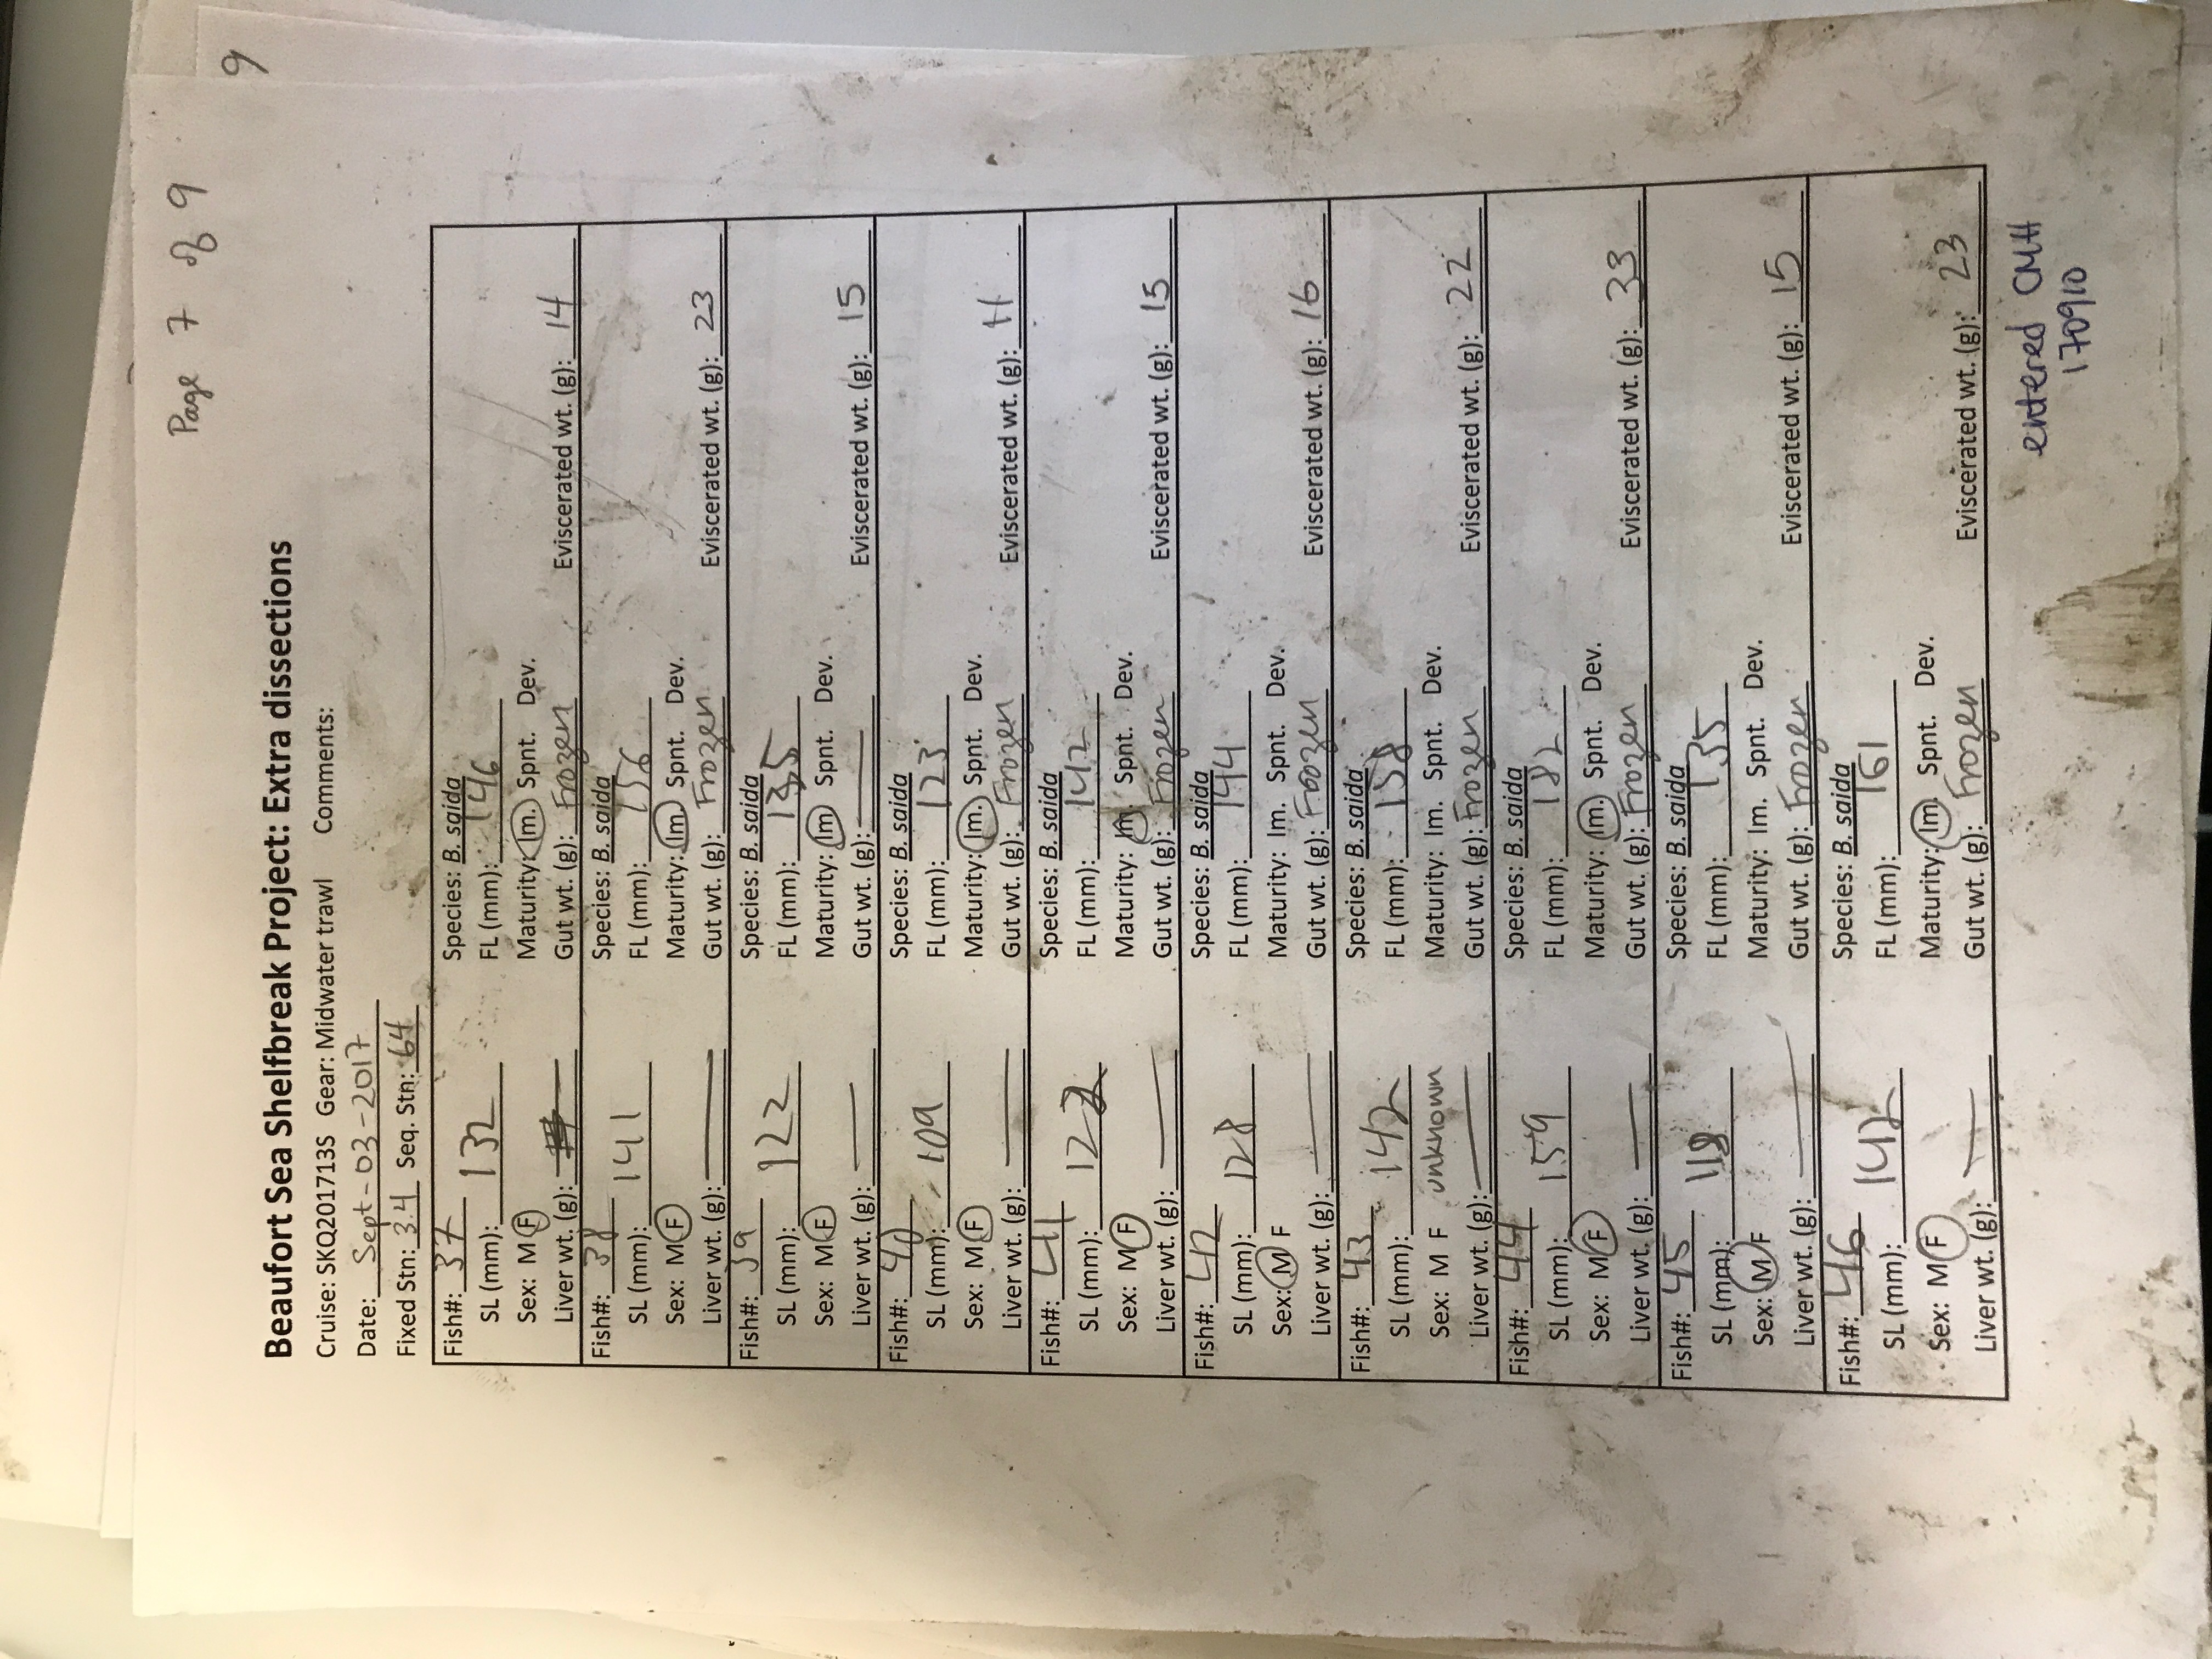 9
Page 7 of 9
Beaufort Sea Shelfbreak Project: Extra dissections
Cruise: SKQ201713S Gear: Midwater trawl Comments:
Date: Sept-03-2017
Fixed Stn: 3.4 Seq. Stn: 64
Fish#: 37 Species: B. saida
SL (mm): 132 FL (mm): 146
Sex: M F Maturity: Im. Spnt. Dev.
Liver wt. (g): Gut wt. (g): Frozen Eviscerated wt. (g): 14
Fish#: 38 Species: B. saida
SL (mm): 141 FL (mm): 156
Sex: M F Maturity: Im. Spnt. Dev.
Liver wt. (g): Gut wt. (g): Frozen Eviscerated wt. (g): 23
Fish#: 39 Species: B. saida
SL (mm): 122 FL (mm): 135
Sex: M F Maturity: Im. Spnt. Dev.
Liver wt. (g): Gut wt. (g): Eviscerated wt. (g): 15
Fish#: 40 Species: B. saida
SL (mm): 109 FL (mm): 123
Sex: M F Maturity: Im. Spnt. Dev.
Liver wt. (g): Gut wt. (g): Frozen Eviscerated wt. (g): 11
Fish#: 41 Species: B. saida
SL (mm): FL (mm): 142
Sex: M F Maturity: Im. Spnt. Dev.
Liver wt. (g): Gut wt. (g): Frozen Eviscerated wt. (g): 15
Fish#: 42 Species: B. saida
SL (mm): 128 FL (mm): 144
Sex: M F Maturity: Im. Spnt. Dev.
Liver wt. (g): Gut wt. (g): Frozen Eviscerated wt. (g): 16
Fish#: 43 Species: B. saida
SL (mm): 142 FL (mm): 158
Sex: M F unknown Maturity: Im. Spnt. Dev.
Liver wt. (g): Gut wt. (g): Frozen Eviscerated wt. (g): 22
Fish#: 44 Species: B. saida
SL (mm): 159 FL (mm): 182
Sex: M F Maturity: Im. Spnt. Dev.
Liver wt. (g): Gut wt. (g): Frozen Eviscerated wt. (g): 33
Fish#: 45 Species: B. saida
SL (mm): 118 FL (mm): 135
Sex: M F Maturity: Im. Spnt. Dev.
Liver wt. (g): Gut wt. (g): Frozen Eviscerated wt. (g): 15
Fish#: 46 Species: B. saida
SL (mm): 142 FL (mm): 161
Sex: M F Maturity: Im. Spnt. Dev.
Liver wt. (g): Gut wt. (g): Frozen Eviscerated wt. (g): 23
entered CMH
170910